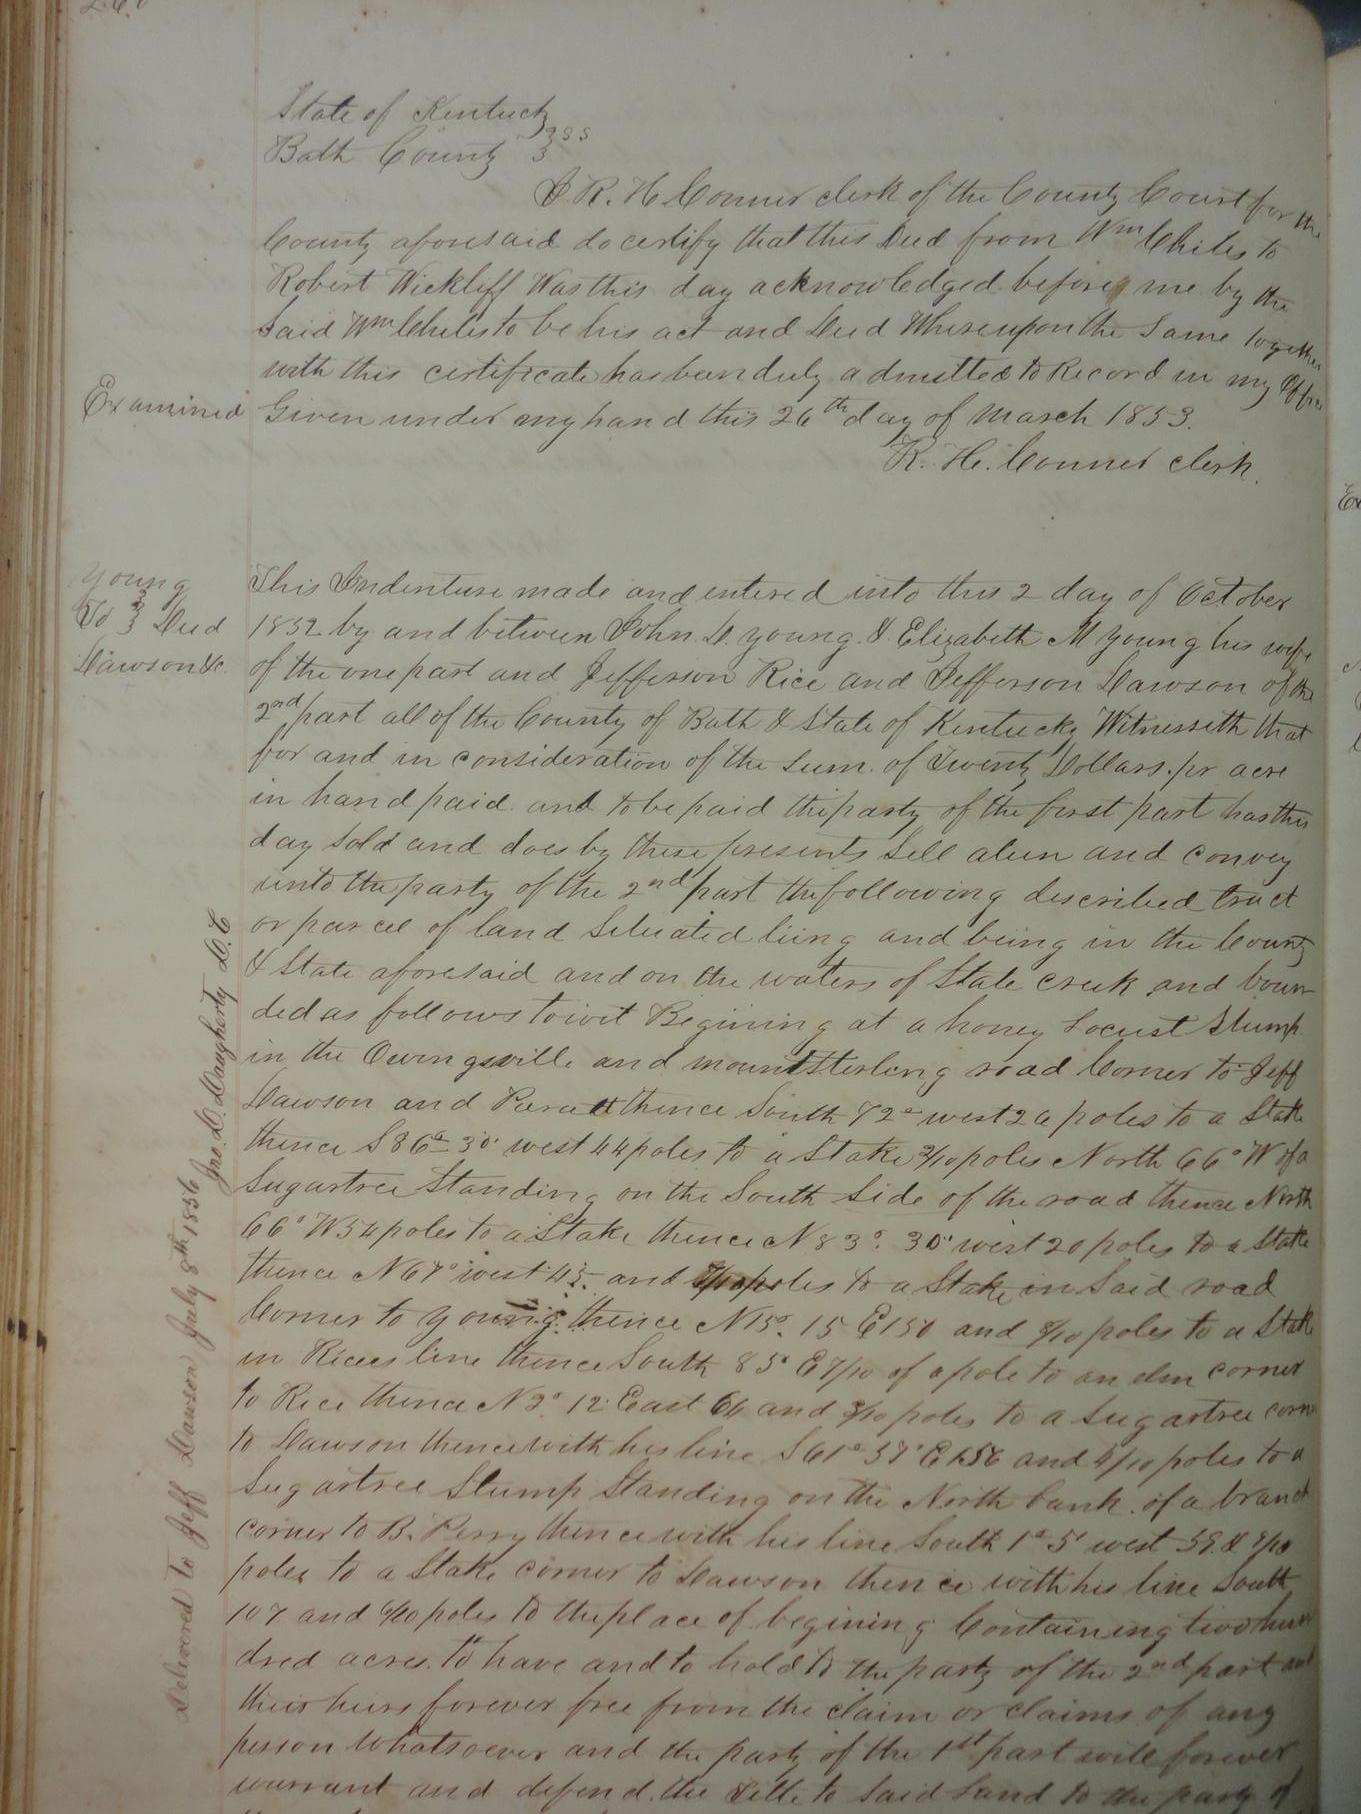 State of Kentucky
Bath County } SS
I R. H. Conner clerk of the County Court for the
County aforesaid do certify that this Deed from Wm Chiles to
Robert Wickliff Was this day acknowledged before me by the
Said Wm Chiles to be his act and Deed Whereupon the Same together
with this certificate has been duly admitted to Record in my Office
Examined
Given under my hand this 26th day of March 1853.
R. H. Conner clerk.
Young
To } Deed
Dawson &c.
This Indenture made and entered into this 2 day of October
1852 by and between John D. Young & Elizabeth M Young his wife
of the one part and Jefferson Rice and Jefferson Dawson of the
2nd part all of the County of Bath & State of Kentucky Witnesseth that
for and in consideration of the Sum of Twenty Dollars pr acre
in hand paid and to be paid the party of the first part has this
day sold and does by these presents Sell alien and convey
unto the party of the 2nd part the following described tract
or parcel of land Situated liing and being in the County
& State aforesaid and on the waters of State creek and boun
ded as follows towit Begining at a honey Locust Stump
in the Owingsville and mountSterling road Corner to Jeff
Dawson and thence South 72° west 26 poles to a Stake
thence S 86° 30' west 44 poles to a Stake 3/10 poles North 66° W of a
Sugartree Standing on the South Side of the road thence North
66° W 54 poles to a Stake thence N 83° 30' west 20 poles to a Stake
thence N 67° west 45 and poles to a Stake in Said road
Corner to Young thence N 15° 15 E 150 and 8/10 poles to a Stake
in Rices line thence South 85° E 7/10 of a pole to an elm corner
to Rice thence N 2° 12' East 64 and 3/10 poles to a Sugartree corn
to Dawson thence with his line S 61° 37' E 156 and 4/10 poles to a
Sugartree Stump Standing on the North bank of a branch
corner to B. Perry thence with his line South 1° 5' west 59 & 9/10
poles to a Stake corner to Dawson thence with his line South
107 and 6/10 poles to the place of begining Containing two hun
dred acres. To have and to hold to the party of the 2nd part and
their heirs forever free from the claim or claims of any
person Whatsoever and the party of the 1st part will forever
warrant and defend the Title to Said Land to the party of
Delivered to Jeff Dawson July 8th 1856
Jno. D. Daugherty D.C